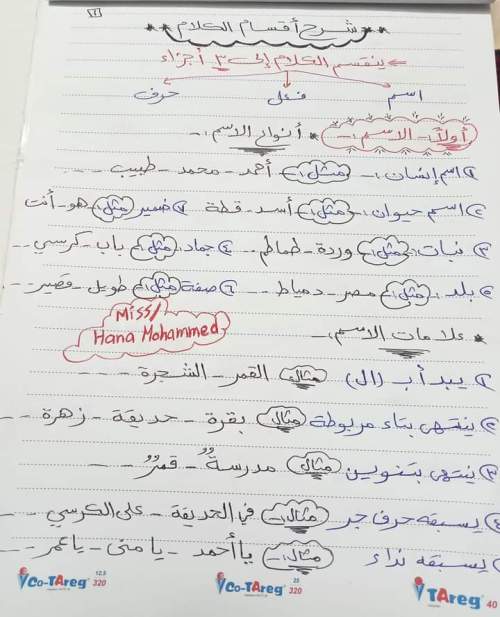 ٢١
** شرح أقسام الكلام **
← ينقسم الكلام إلى ٣ أجزاء
اسم فعل حرف
أولًا - الاسم :- * أنواع الاسم :-
١ اسم إنسان :- مثل :- أحمد - محمد - طبيب - - -
٢ اسم حيوان :- مثل :- أسد - قطة ٧ ضمير مثل :- هو - أنت
٣ نبات :- مثل :- وردة - طماطم - - ٤ جماد :- مثل :- باب - كرسي - -
٥ بلد :- مثل :- مصر - دمياط - - ٦ صفة مثل :- طويل - قصير - -
Miss/
Hana Mohammed
* علامات الاسم :-
١ يبدأ ب (ال) مثال القمر - الشجرة - - - -
٢ ينتهي بتاء مربوطة مثال بقرة - حديقة - زهرة - -
٣ ينتهي بتنوين مثال مدرسةٌ - قمرٌ - -
٤ يسبقه حرف جر مثال :- في الحديقة - على الكرسي - - -
يسبقه نداء مثال :- يا أحمد - يا منى - يا عمر - - -
Co-TAreg 12.5 320 Co-TAreg 25 320 TAreg 40